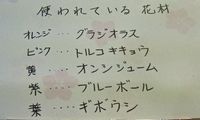 使われている 花材
オレンジ・・・グラジオラス
ピンク・・・トルコキキョウ
黄・・・オンシジューム
紫・・・ブルーボール
葉・・・ギボウシ